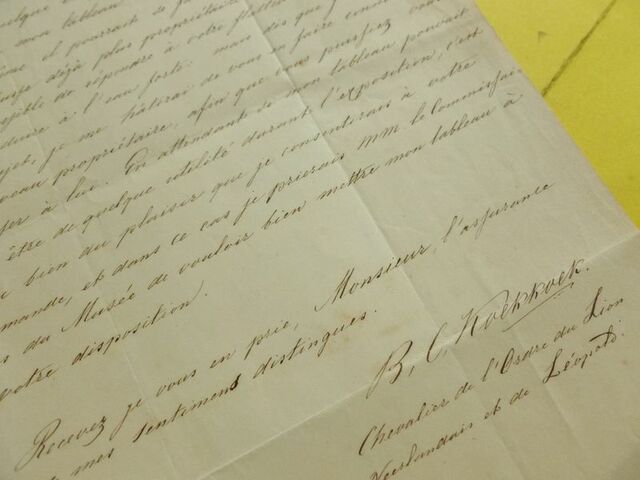 mon tableau
et pourrait
déjà plus propriétaire
de répondre à votre
à l'eau forte: mais dès que
je me hâterai de vous en faire
propriétaire, afin que vous puissiez vous
à lui. En attendant si mon tableau pouvait
être de quelque utilité durant l'exposition, c'est
bien du plaisir que je consentirais à votre
et dans ce cas je prierais MM. le Commissai
du Musée de vouloir bien mettre mon tableau à
votre disposition.
Recevez je vous en prie, Monsieur, l'assurance
mes sentimens distingués.
B. C. Koekkoek.
Chevalier de l'Ordre du Lion
Neerlandais et de Léopold.